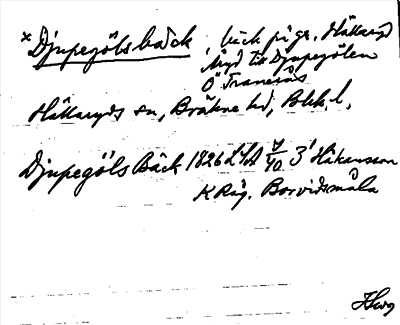 × Djupegöls bäck , bäck på gr. Hällaryd
Myd till Djupegölen
O Tranesås
Hällaryds sn, Bräkne hd, Blek. l.
Djupegöls Bäck 1826 LSA 3¹ Håkansson
K Råg. Borvidsmåla